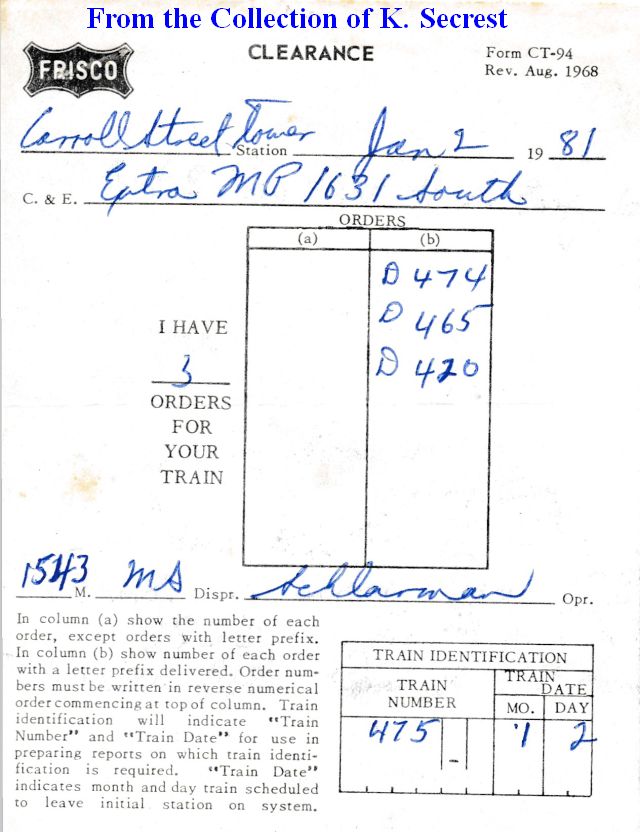 From the Collection of K. Secrest
FRISCO
CLEARANCE
Form CT-94
Rev. Aug. 1968
Carroll Street Tower Station Jan 2 19 81
C. & E. Extra MP 1631 South
ORDERS
(a) (b)
D 474
D 465
D 420
I HAVE
3
ORDERS
FOR
YOUR
TRAIN
1543 M. MS Dispr. Schlarman Opr.
In column (a) show the number of each
order, except orders with letter prefix.
In column (b) show number of each order
with a letter prefix delivered. Order num-
bers must be written in reverse numerical
order commencing at top of column. Train
identification will indicate "Train
Number" and "Train Date" for use in
preparing reports on which train identi-
fication is required. "Train Date"
indicates month and day train scheduled
to leave initial station on system.
TRAIN IDENTIFICATION
TRAIN
NUMBER
TRAIN
DATE
MO. DAY
475 - 1 2